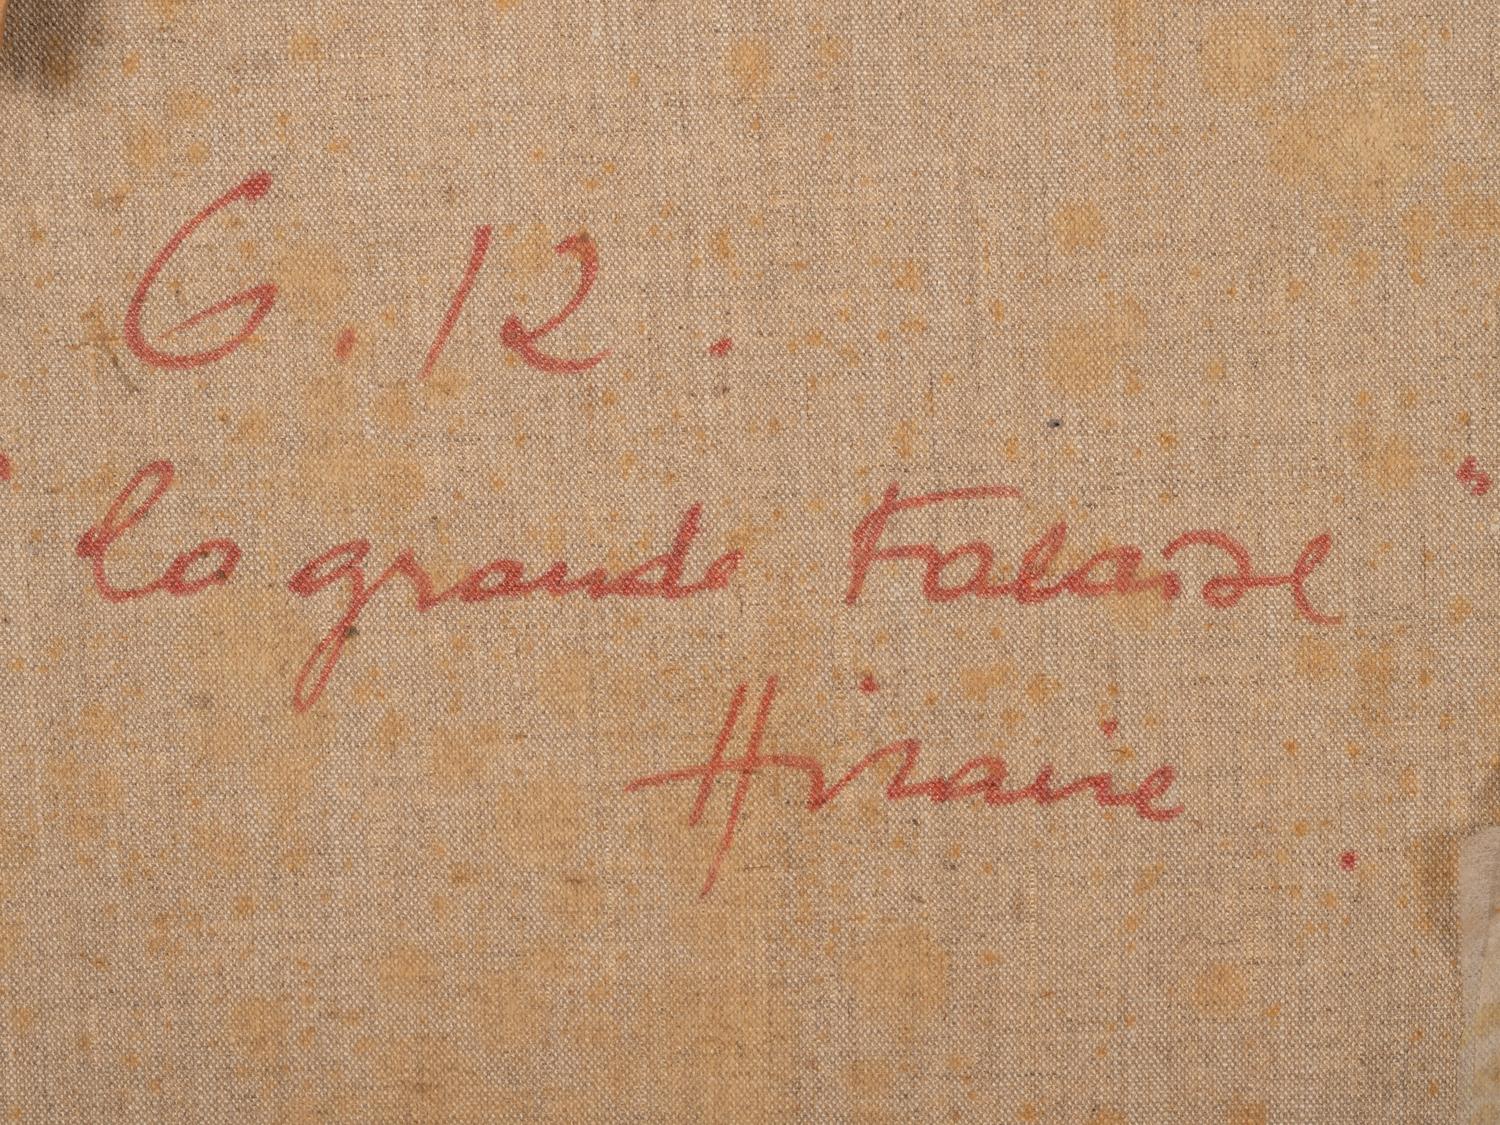 6.12.
"la grande Falaise"
Hiraire.